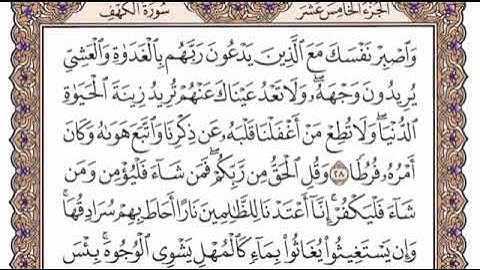 الجزء الخامس عشر سورة الكهف
وَاصْبِرْ نَفْسَكَ مَعَ الَّذِينَ يَدْعُونَ رَبَّهُم بِالْغَدَوٰةِ وَالْعَشِيِّ
يُرِيدُونَ وَجْهَهُۥ ۖ وَلَا تَعْدُ عَيْنَاكَ عَنْهُمْ تُرِيدُ زِينَةَ الْحَيَوٰةِ
الدُّنْيَا ۖ وَلَا تُطِعْ مَنْ أَغْفَلْنَا قَلْبَهُۥ عَن ذِكْرِنَا وَاتَّبَعَ هَوَىٰهُ وَكَانَ
أَمْرُهُۥ فُرُطًا ٢٨ وَقُلِ الْحَقُّ مِن رَّبِّكُمْ ۖ فَمَن شَاءَ فَلْيُؤْمِن وَمَن
شَاءَ فَلْيَكْفُرْ ۚ إِنَّا أَعْتَدْنَا لِلظَّالِمِينَ نَارًا أَحَاطَ بِهِمْ سُرَادِقُهَا ۚ
وَإِن يَسْتَغِيثُوا يُغَاثُوا بِمَاءٍ كَالْمُهْلِ يَشْوِي الْوُجُوهَ ۚ بِئْسَ